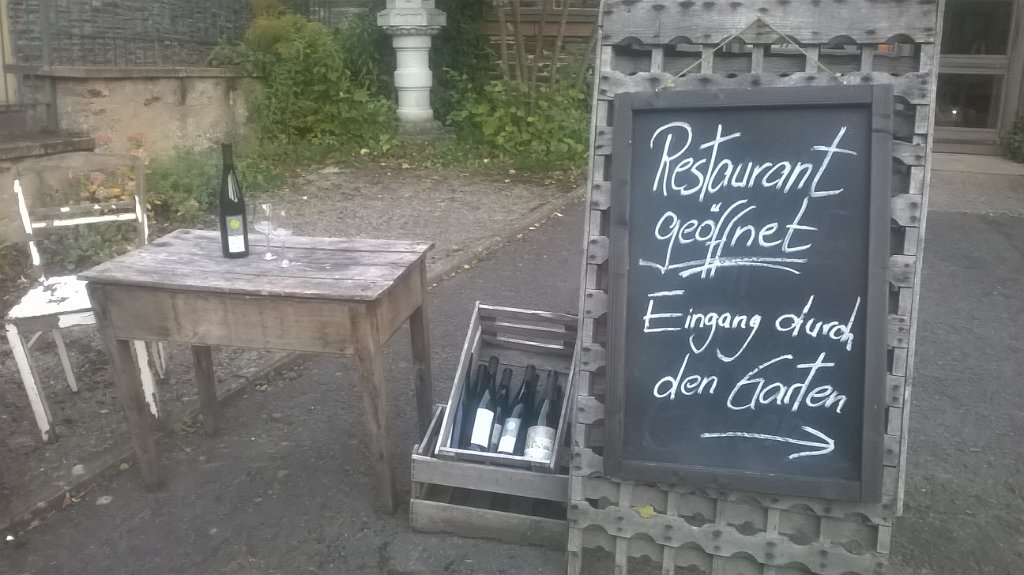 Restaurant
geöffnet
Eingang durch
den Garten